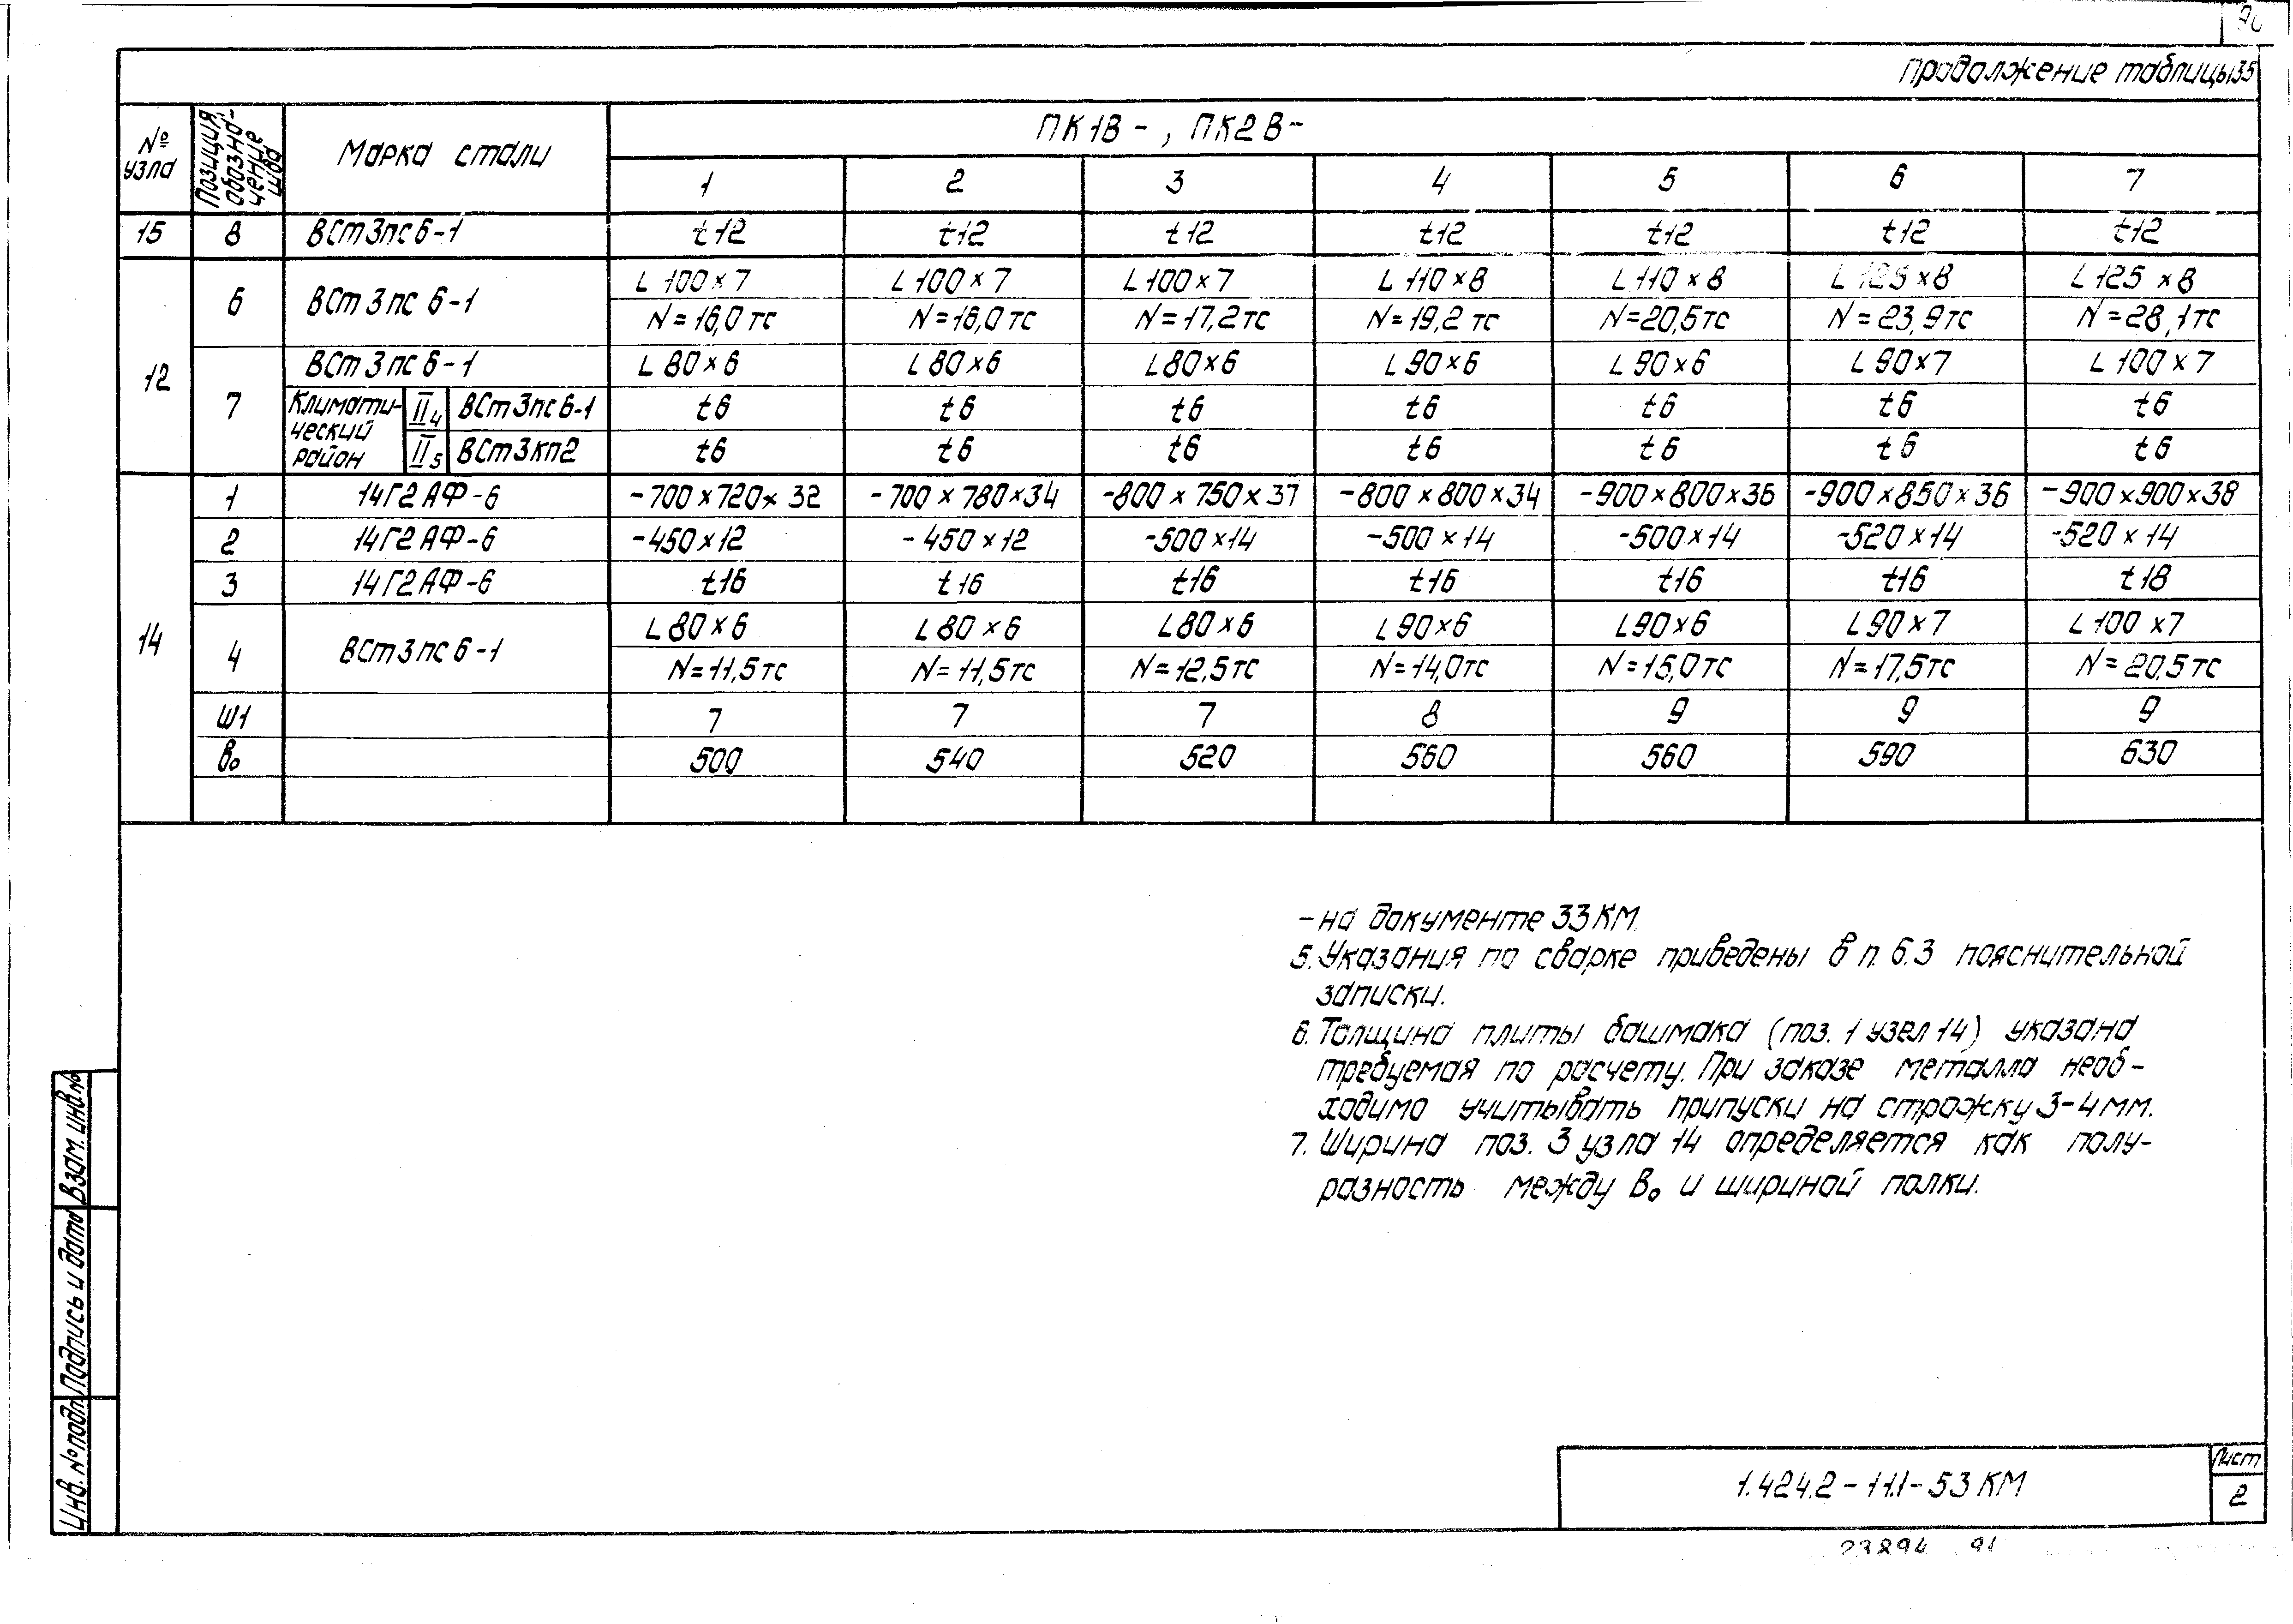 Продолжение таблицы 35
№ узла | Позиция, обозначение шва | Марка стали | ПК1В - , ПК2В -
1 | 2 | 3 | 4 | 5 | 6 | 7
15 | 8 | ВСт3пс6-1 | t12 | t12 | t12 | t12 | t12 | t12 | t12
12 | 6 | ВСт3пс6-1 | L 100×7 | L 100×7 | L 100×7 | L 110×8 | L 110×8 | L 125×8 | L 125×8
N=16,0тс | N=16,0тс | N=17,2тс | N=19,2тс | N=20,5тс | N=23,9тс | N=28,1тс
7 | ВСт3пс6-1 | L 80×6 | L 80×6 | L 80×6 | L 90×6 | L 90×6 | L 90×7 | L 100×7
Климатический район | II4 | ВСт3пс6-1 | t6 | t6 | t6 | t6 | t6 | t6 | t6
II5 | ВСт3кп2 | t6 | t6 | t6 | t6 | t6 | t6 | t6
14 | 1 | 14Г2АФ-6 | -700×720×32 | -700×780×34 | -800×750×37 | -800×800×34 | -900×800×36 | -900×850×36 | -900×900×38
2 | 14Г2АФ-6 | -450×12 | -450×12 | -500×14 | -500×14 | -500×14 | -520×14 | -520×14
3 | 14Г2АФ-6 | t16 | t16 | t16 | t16 | t16 | t16 | t18
4 | ВСт3пс6-1 | L 80×6 | L 80×6 | L 80×6 | L 90×6 | L 90×6 | L 90×7 | L 100×7
N=11,5тс | N=11,5тс | N=12,5тс | N=14,0тс | N=15,0тс | N=17,5тс | N=20,5тс
Ш1 | 7 | 7 | 7 | 8 | 9 | 9 | 9
в₀ | 500 | 540 | 520 | 560 | 560 | 590 | 630
- на документе 33КМ.
5. Указания по сварке приведены в п. 6.3 пояснительной
записки.
6. Толщина плиты башмака (поз. 1 узел 14) указана
требуемая по расчету. При заказе металла необ-
ходимо учитывать припуски на стражку 3-4мм.
7. Ширина поз. 3 узла 14 определяется как полу-
разность между в₀ и шириной полки.
Взам. инв. №
Подпись и дата
Инв. № подл.
1.424.2-11.1-53 КМ
Лист
2
23894 91